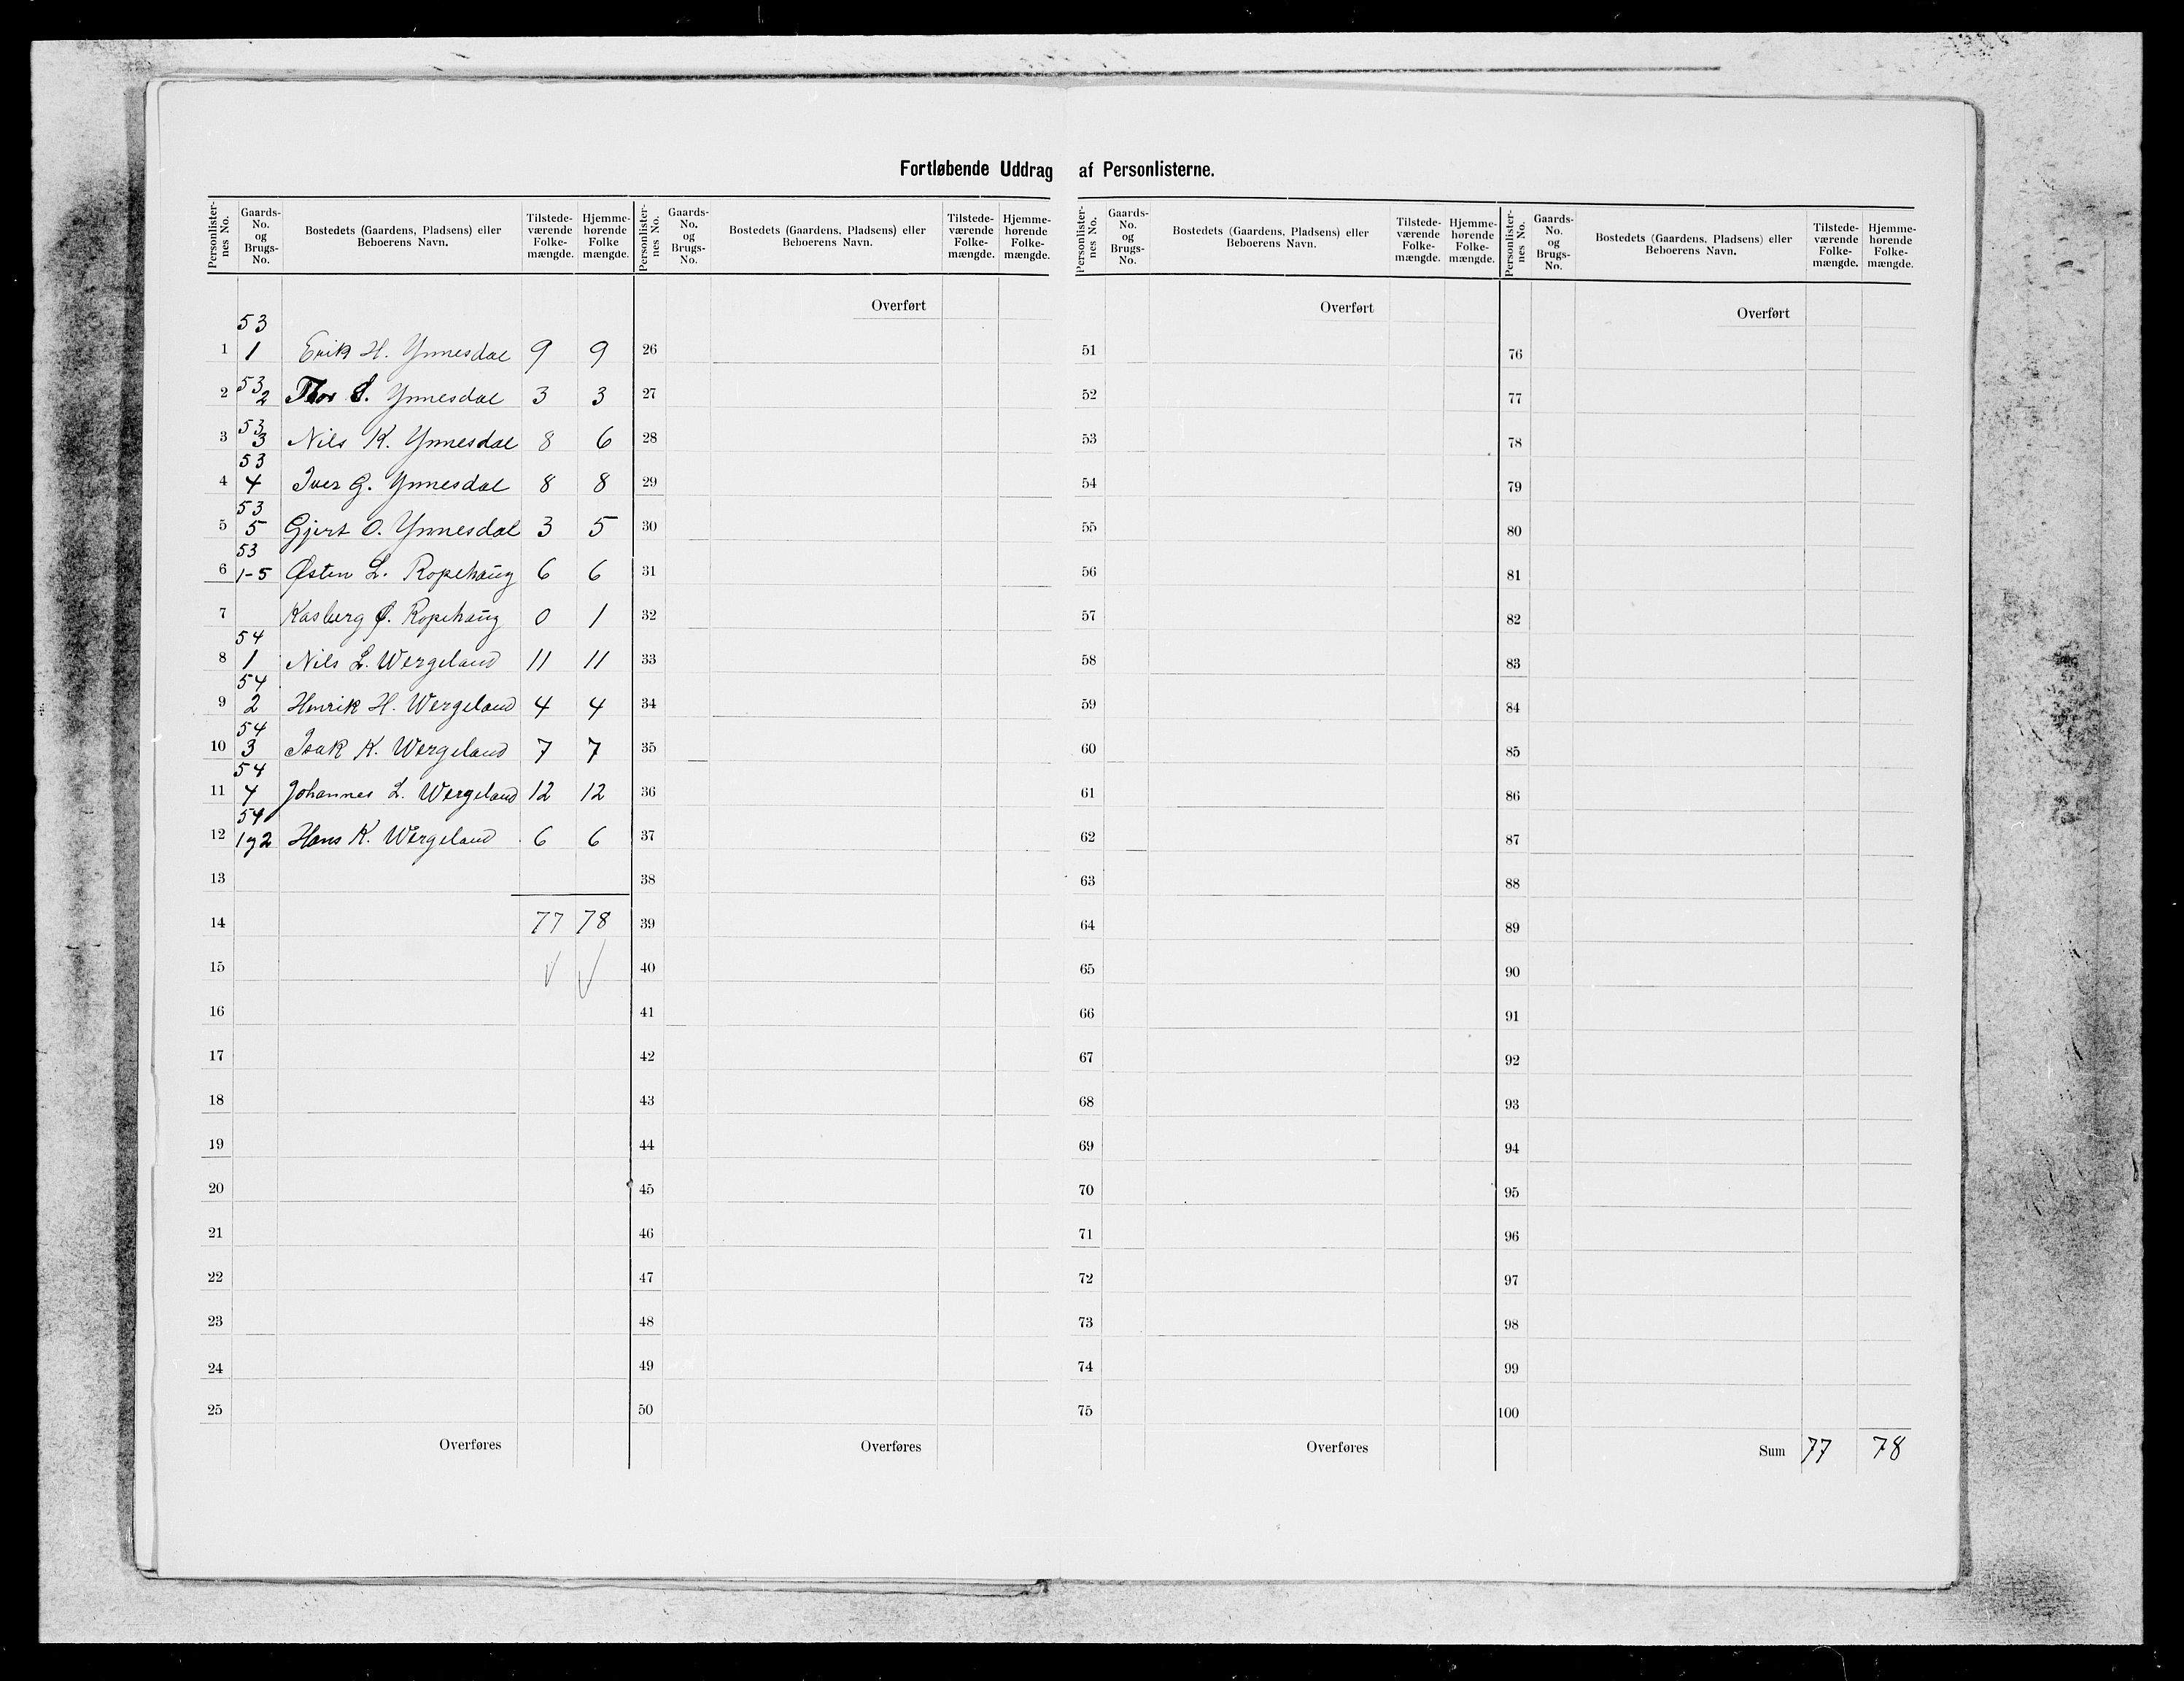 Fortløbende Uddrag af Personlisterne.
Personlister-nes No. | Gaards-No. og Brugs-No. | Bostedets (Gaardens, Pladsens) eller Beboerens Navn. | Tilstede-værende Folke-mængde. | Hjemme-hørende Folke mængde.
Personlister-nes No. | Gaards-No. og Brugs-No. | Bostedets (Gaardens, Pladsens) eller Beboerens Navn. | Tilstede-værende Folke-mængde. | Hjemme-hørende Folke-mængde.
Personlister-nes No. | Gaards-No. og Brugs-No. | Bostedets (Gaardens, Pladsens) eller Beboerens Navn. | Tilstede-værende Folke-mængde. | Hjemme-hørende Folke-mængde.
Personlister-nes No. | Gaards-No. og Brugs-No. | Bostedets (Gaardens, Pladsens) eller Beboerens Navn. | Tilstede-værende Folke-mængde. | Hjemme-hørende Folke-mængde.
1 53 1 Erik H. Ynnesdal 9 9
2 53 2 Thor S. Ynnesdal 3 3
3 53 3 Nils K. Ynnesdal 8 6
4 53 4 Iver G. Ynnesdal 8 8
5 53 5 Gjert O. Ynnesdal 3 5
6 53 1-5 Østen L. Ropehaug 6 6
7 Kasberg Ø. Ropehaug 0 1
8 54 1 Nils L. Wergeland 11 11
9 54 2 Henrik H. Wergeland 4 4
10 54 3 Isak K. Wergeland 7 7
11 54 4 Johannes L. Wergeland 12 12
12 54 1 g 2 Hans K. Wergeland 6 6
13
14 77 78
15
16
17
18
19
20
21
22
23
24
25
Overføres
Overført
26
27
28
29
30
31
32
33
34
35
36
37
38
39
40
41
42
43
44
45
46
47
48
49
50
Overføres
Overført
51
52
53
54
55
56
57
58
59
60
61
62
63
64
65
66
67
68
69
70
71
72
73
74
75
Overføres
Overført
76
77
78
79
80
81
82
83
84
85
86
87
88
89
90
91
92
93
94
95
96
97
98
99
100
Sum 77 78